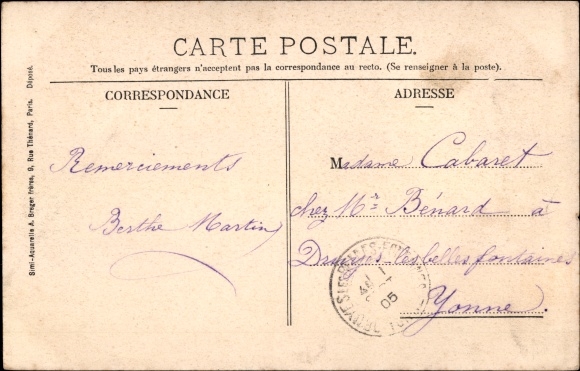 CARTE POSTALE.
Tous les pays étrangers n'acceptent pas la correspondance au recto. (Se renseigner à la poste).
CORRESPONDANCE
Remerciements
Berthe Martin
ADRESSE
Madame Cabaret
chez Mr Bénard à
Druyes-les-belles fontaines
Yonne.
05
Simi-Aquarelle A. Breger frères, 9, Rue Thénard, Paris. Déposé.